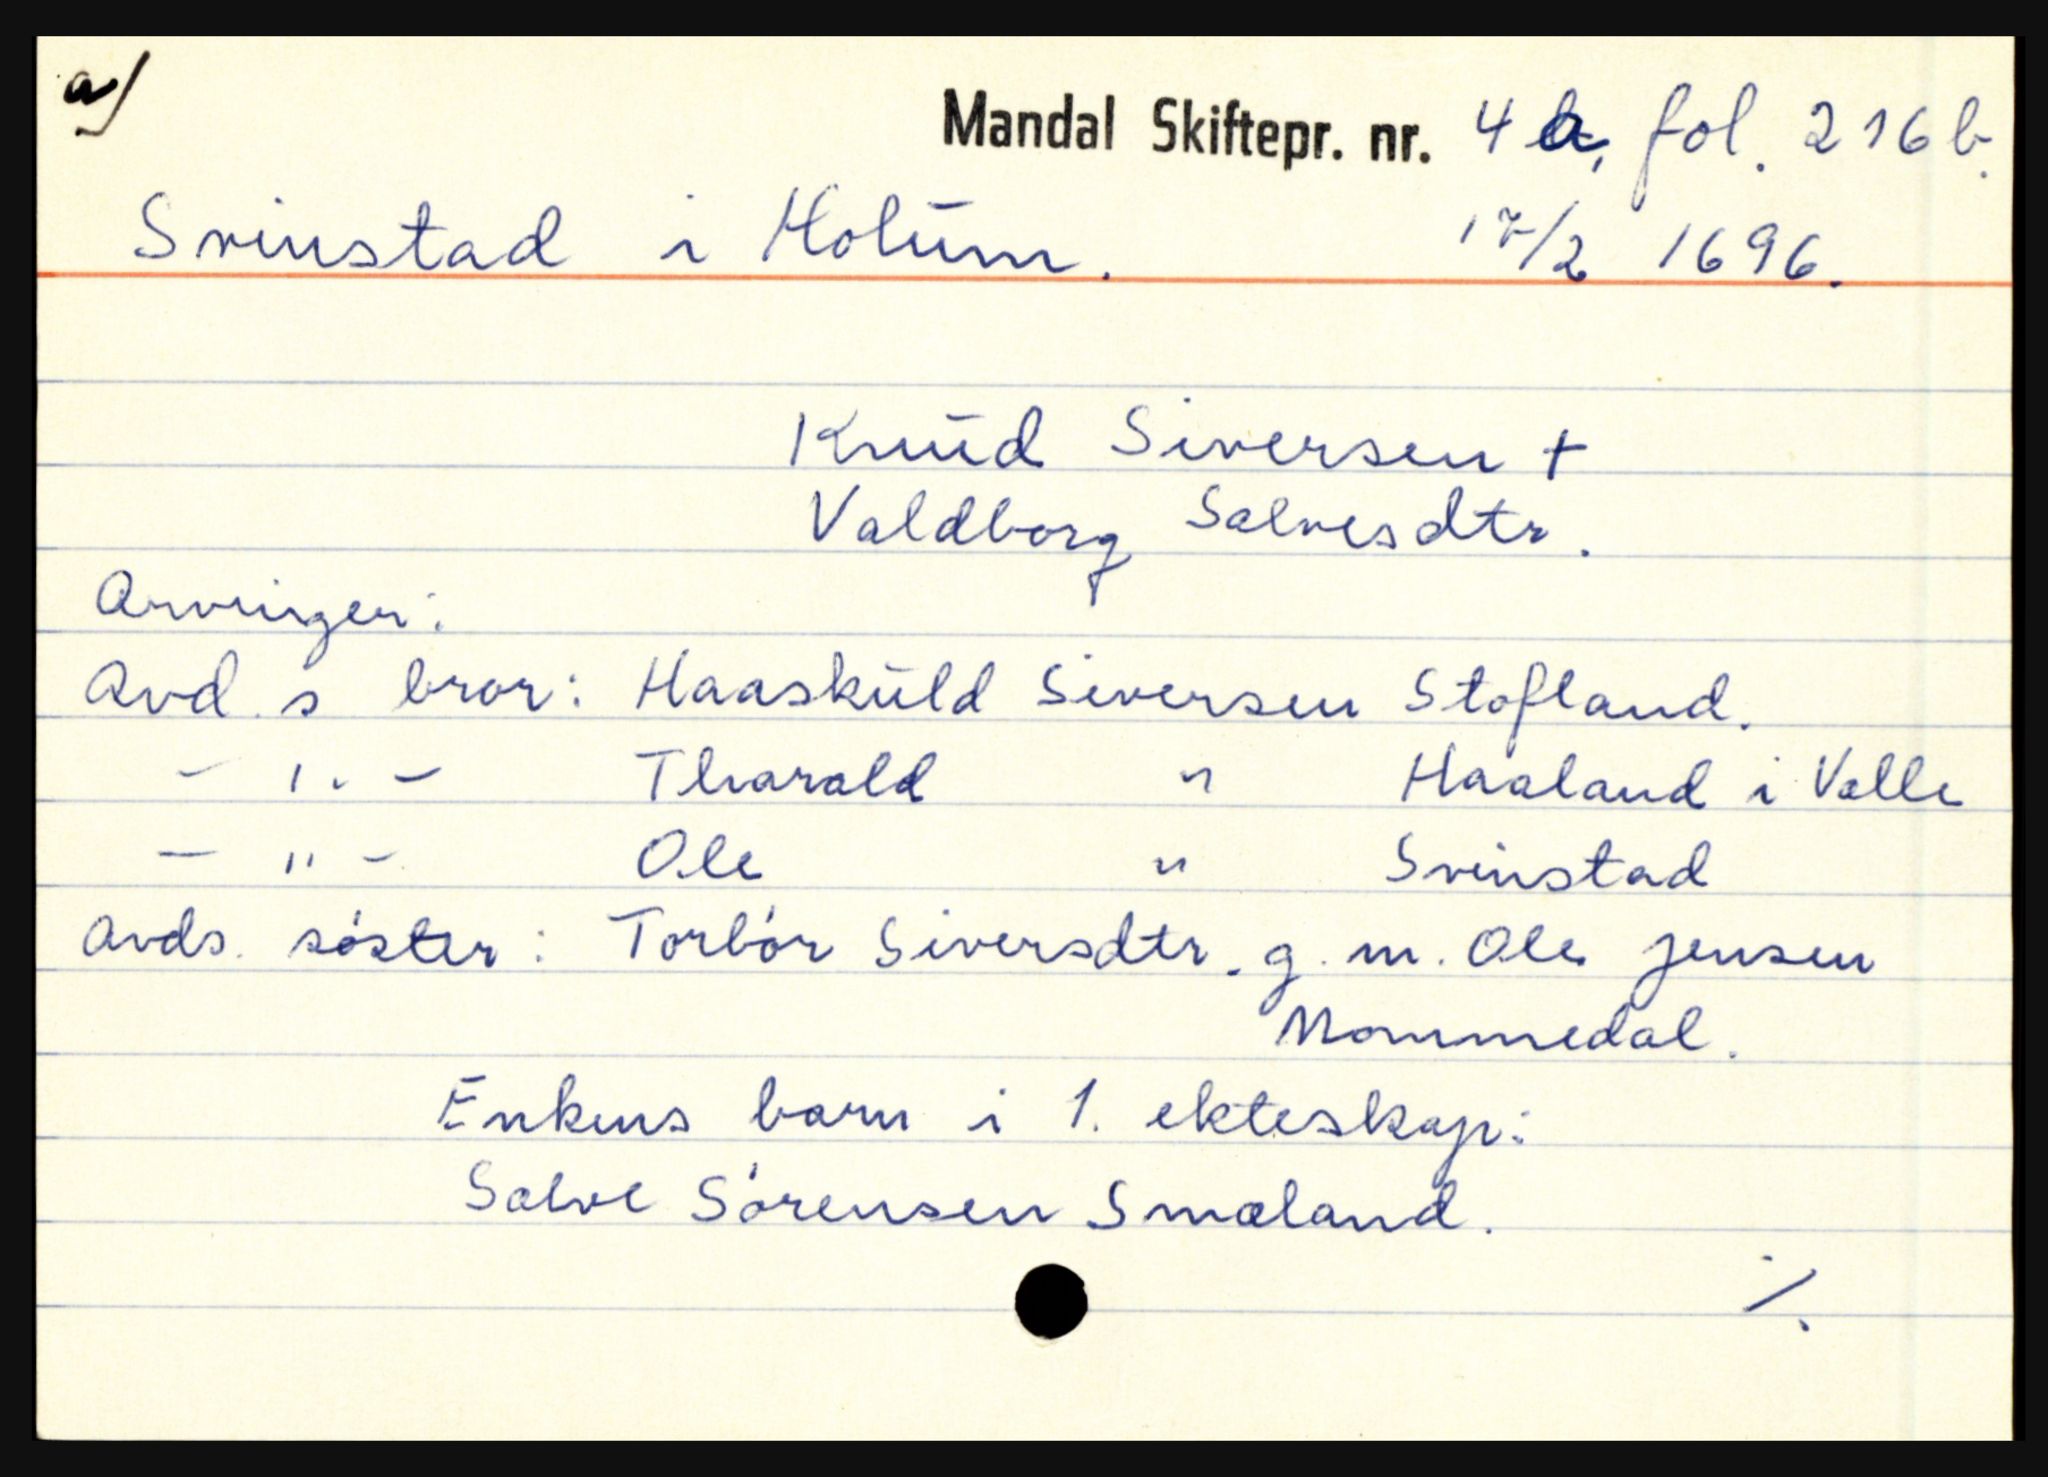 a)
Mandal Skiftepr. nr. 4 a, fol. 216 b.
Svinstad i Holum. 17/2 1696.
Knud Siversen +
Valdborg Salvesdtr.
Arvinger:
Avd. s bror: Haaskuld Siversen Stofland.
- " - Tharald " Haaland i Valle
- " - Ole " Svinstad
Avds. søster: Torbór Siversdtr. g. m. Ole Jensen
Mommedal.
Enkens barn i 1. ekteskap:
Salve Sörensen Smaland.
./.